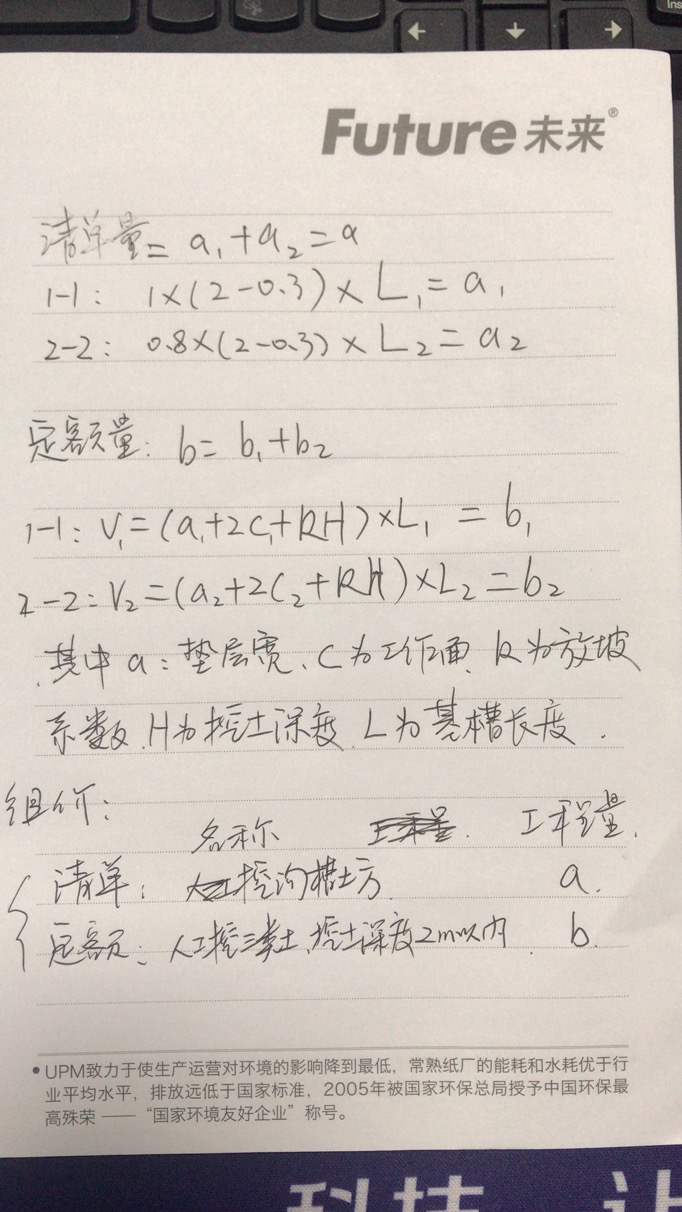 Ins
Future未来®
清单量= a₁+a₂=a
1-1: 1×(2-0.3)×L₁=a₁
2-2: 0.8×(2-0.3)×L₂=a₂
定额量: b= b₁+b₂
1-1: V₁=(a₁+2C₁+KH)×L₁ = b₁
2-2: V₂=(a₂+2C₂+KH)×L₂=b₂
其中a:垫层宽、C为工作面、K为放坡
系数、H为挖土深度、L为基槽长度.
组价:
名称 工程量.
清单: 挖沟槽土方. a.
定额: 人工挖三类土、挖土深度2m以内. b.
•UPM致力于使生产运营对环境的影响降到最低,常熟纸厂的能耗和水耗优于行
业平均水平,排放远低于国家标准,2005年被国家环保总局授予中国环保最
高殊荣 —— “国家环境友好企业”称号。
科技 让